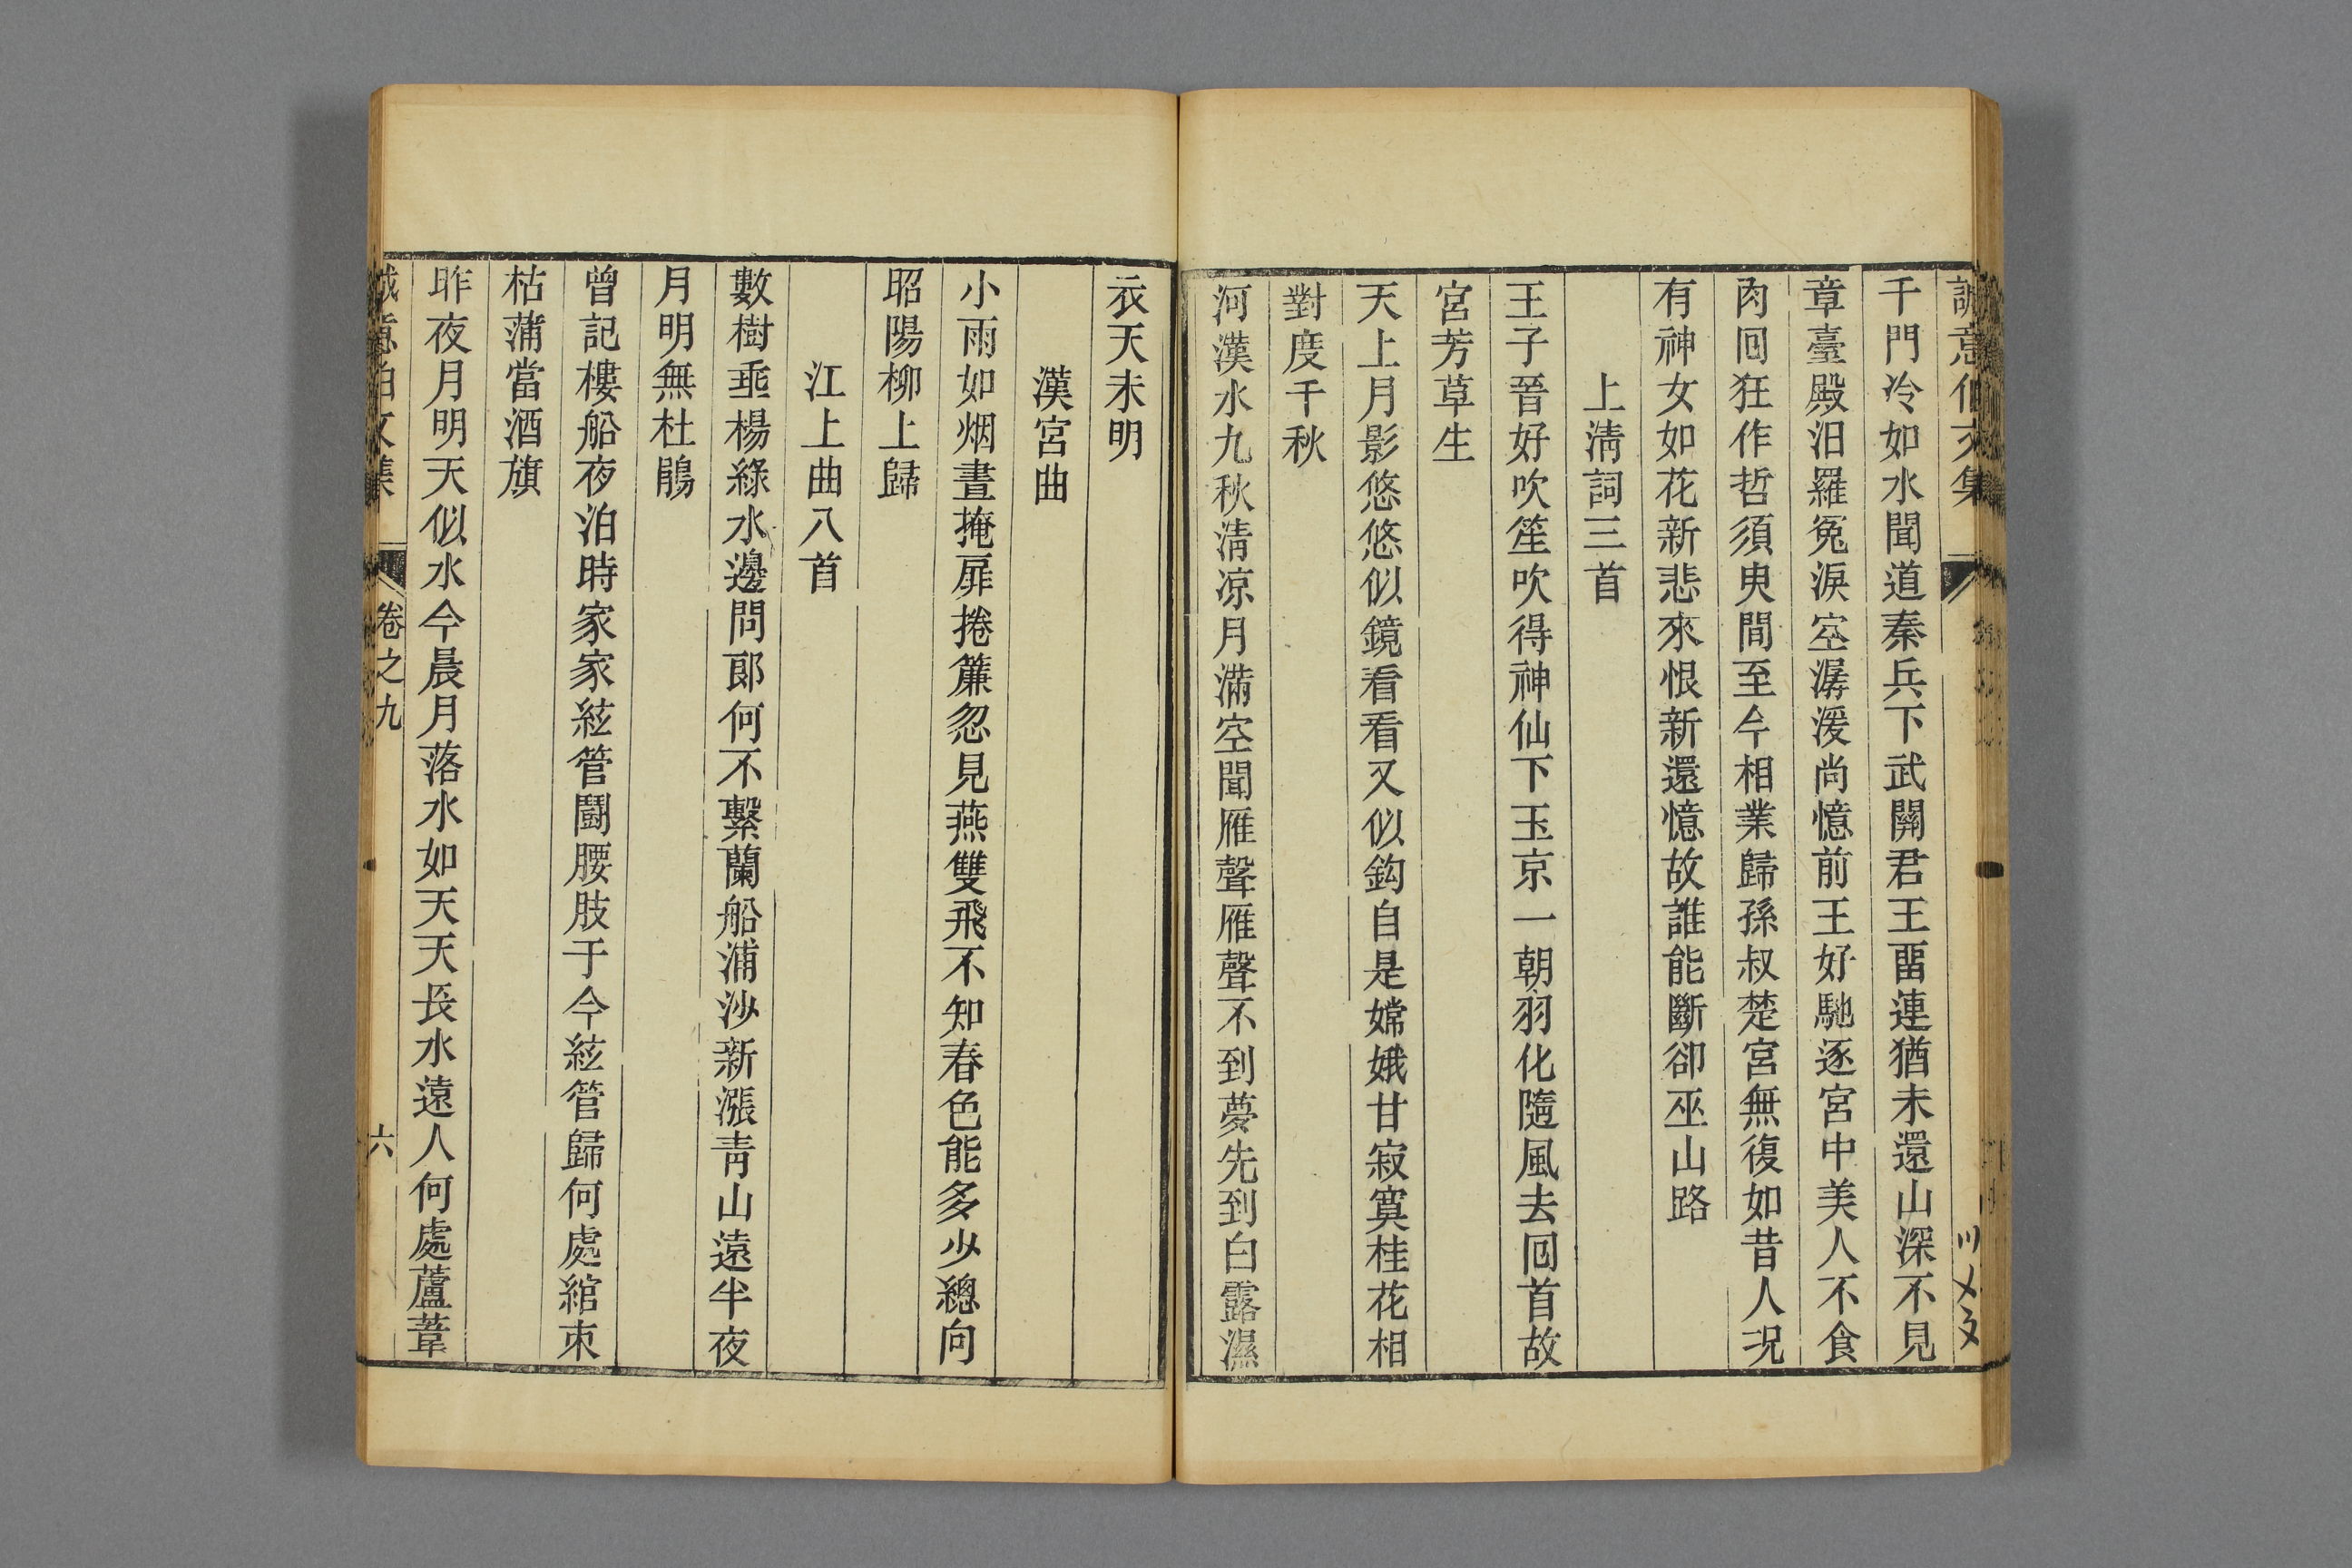 誠意伯文集
千門冷如水聞道秦兵下武關君王畱連猶未還山深不見
章臺殿汨羅冤淚空潺湲尚憶前王好馳逐宮中美人不食
肉囘狂作哲須臾間至今相業歸孫叔楚宮無復如昔人况
有神女如花新悲來恨新還憶故誰能斷卻巫山路
上淸詞三首
王子晉好吹笙吹得神仙下玉京一朝羽化隨風去囘首故
宮芳草生
天上月影悠悠似鏡看看又似鈎自是嫦娥甘寂寞桂花相
對度千秋
河漢水九秋淸凉月滿空聞雁聲雁聲不到夢先到白露濕
衣天未明
漢宮曲
小雨如烟晝掩扉捲簾忽見燕雙飛不知春色能多少總向
昭陽柳上歸
江上曲八首
數樹垂楊綠水邊問郞何不繫蘭船浦沙新漲靑山遠半夜
月明無杜鵑
曾記樓船夜泊時家家絃管鬭腰肢于今絃管歸何處綰束
枯蒲當酒旗
昨夜月明天似水今晨月落水如天天長水遠人何處蘆葦
誠意伯文集 卷之九 六